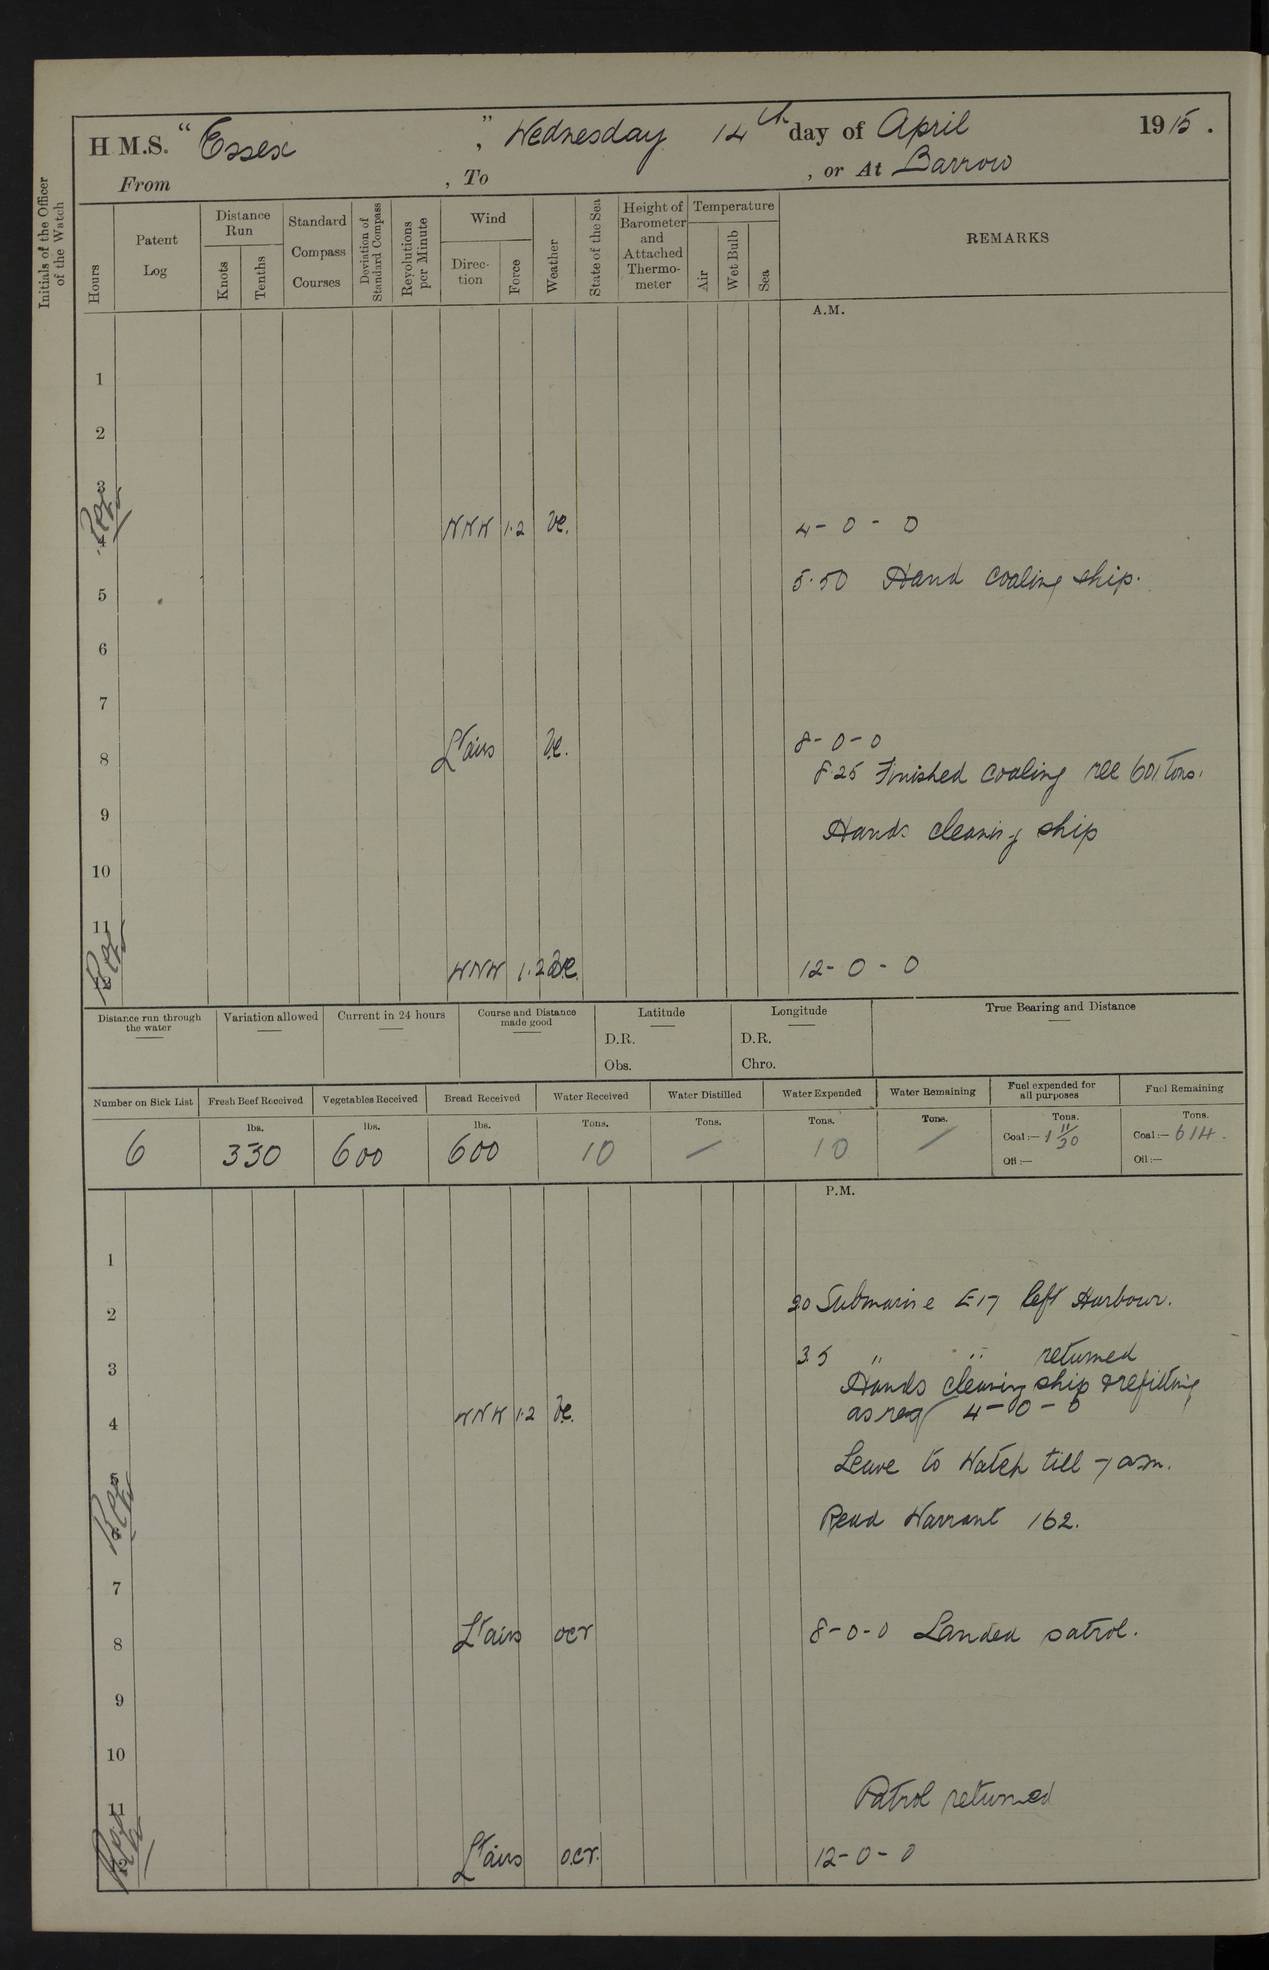 H.M.S. "Essex", Wednesday 14th day of April 1915.
From , To , or At Barrow
Initials of the Officer of the Watch
Hours
Patent Log
Distance Run
Knots
Tenths
Standard Compass Courses
Deviation of Standard Compass
Revolutions per Minute
Wind
Direction
Force
Weather
State of the Sea
Height of Barometer and Attached Thermometer
Temperature
Air
Wet Bulb
Sea
REMARKS
A.M.
1
2
3
4 NNW 1.2 bc. 4-0-0
5 5.50 Hand coaling ship.
6
7
8 Lt airs bc. 8-0-0
8.25 Finished coaling rec 601 Tons.
9 Hands cleaning ship
10
11
WNW 1.2 bc. 12-0-0
Distance run through the water
Variation allowed
Current in 24 hours
Course and Distance made good
Latitude
D.R.
Obs.
Longitude
D.R.
Chro.
True Bearing and Distance
Number on Sick List
Fresh Beef Received
Vegetables Received
Bread Received
Water Received
Water Distilled
Water Expended
Water Remaining
Fuel expended for all purposes
Fuel Remaining
lbs. lbs. lbs. Tons. Tons. Tons. Tons. Tons. Tons.
6 330 600 600 10 — 10 — Coal:— 1 11/30 Coal:— 614.
Oil:— Oil:—
P.M.
1
2 20 Submarine E17 left Harbour.
3 3.5 " " returned
Hands cleaning ship & refitting
4 WNW 1.2 bc. as req 4-0-0
Leave to Watch till 7 am.
5
Read Warrant 162.
7
8 Lt airs ocr 8-0-0 Landed patrol.
9
10
11 Patrol returned
Lt airs o.c.r. 12-0-0